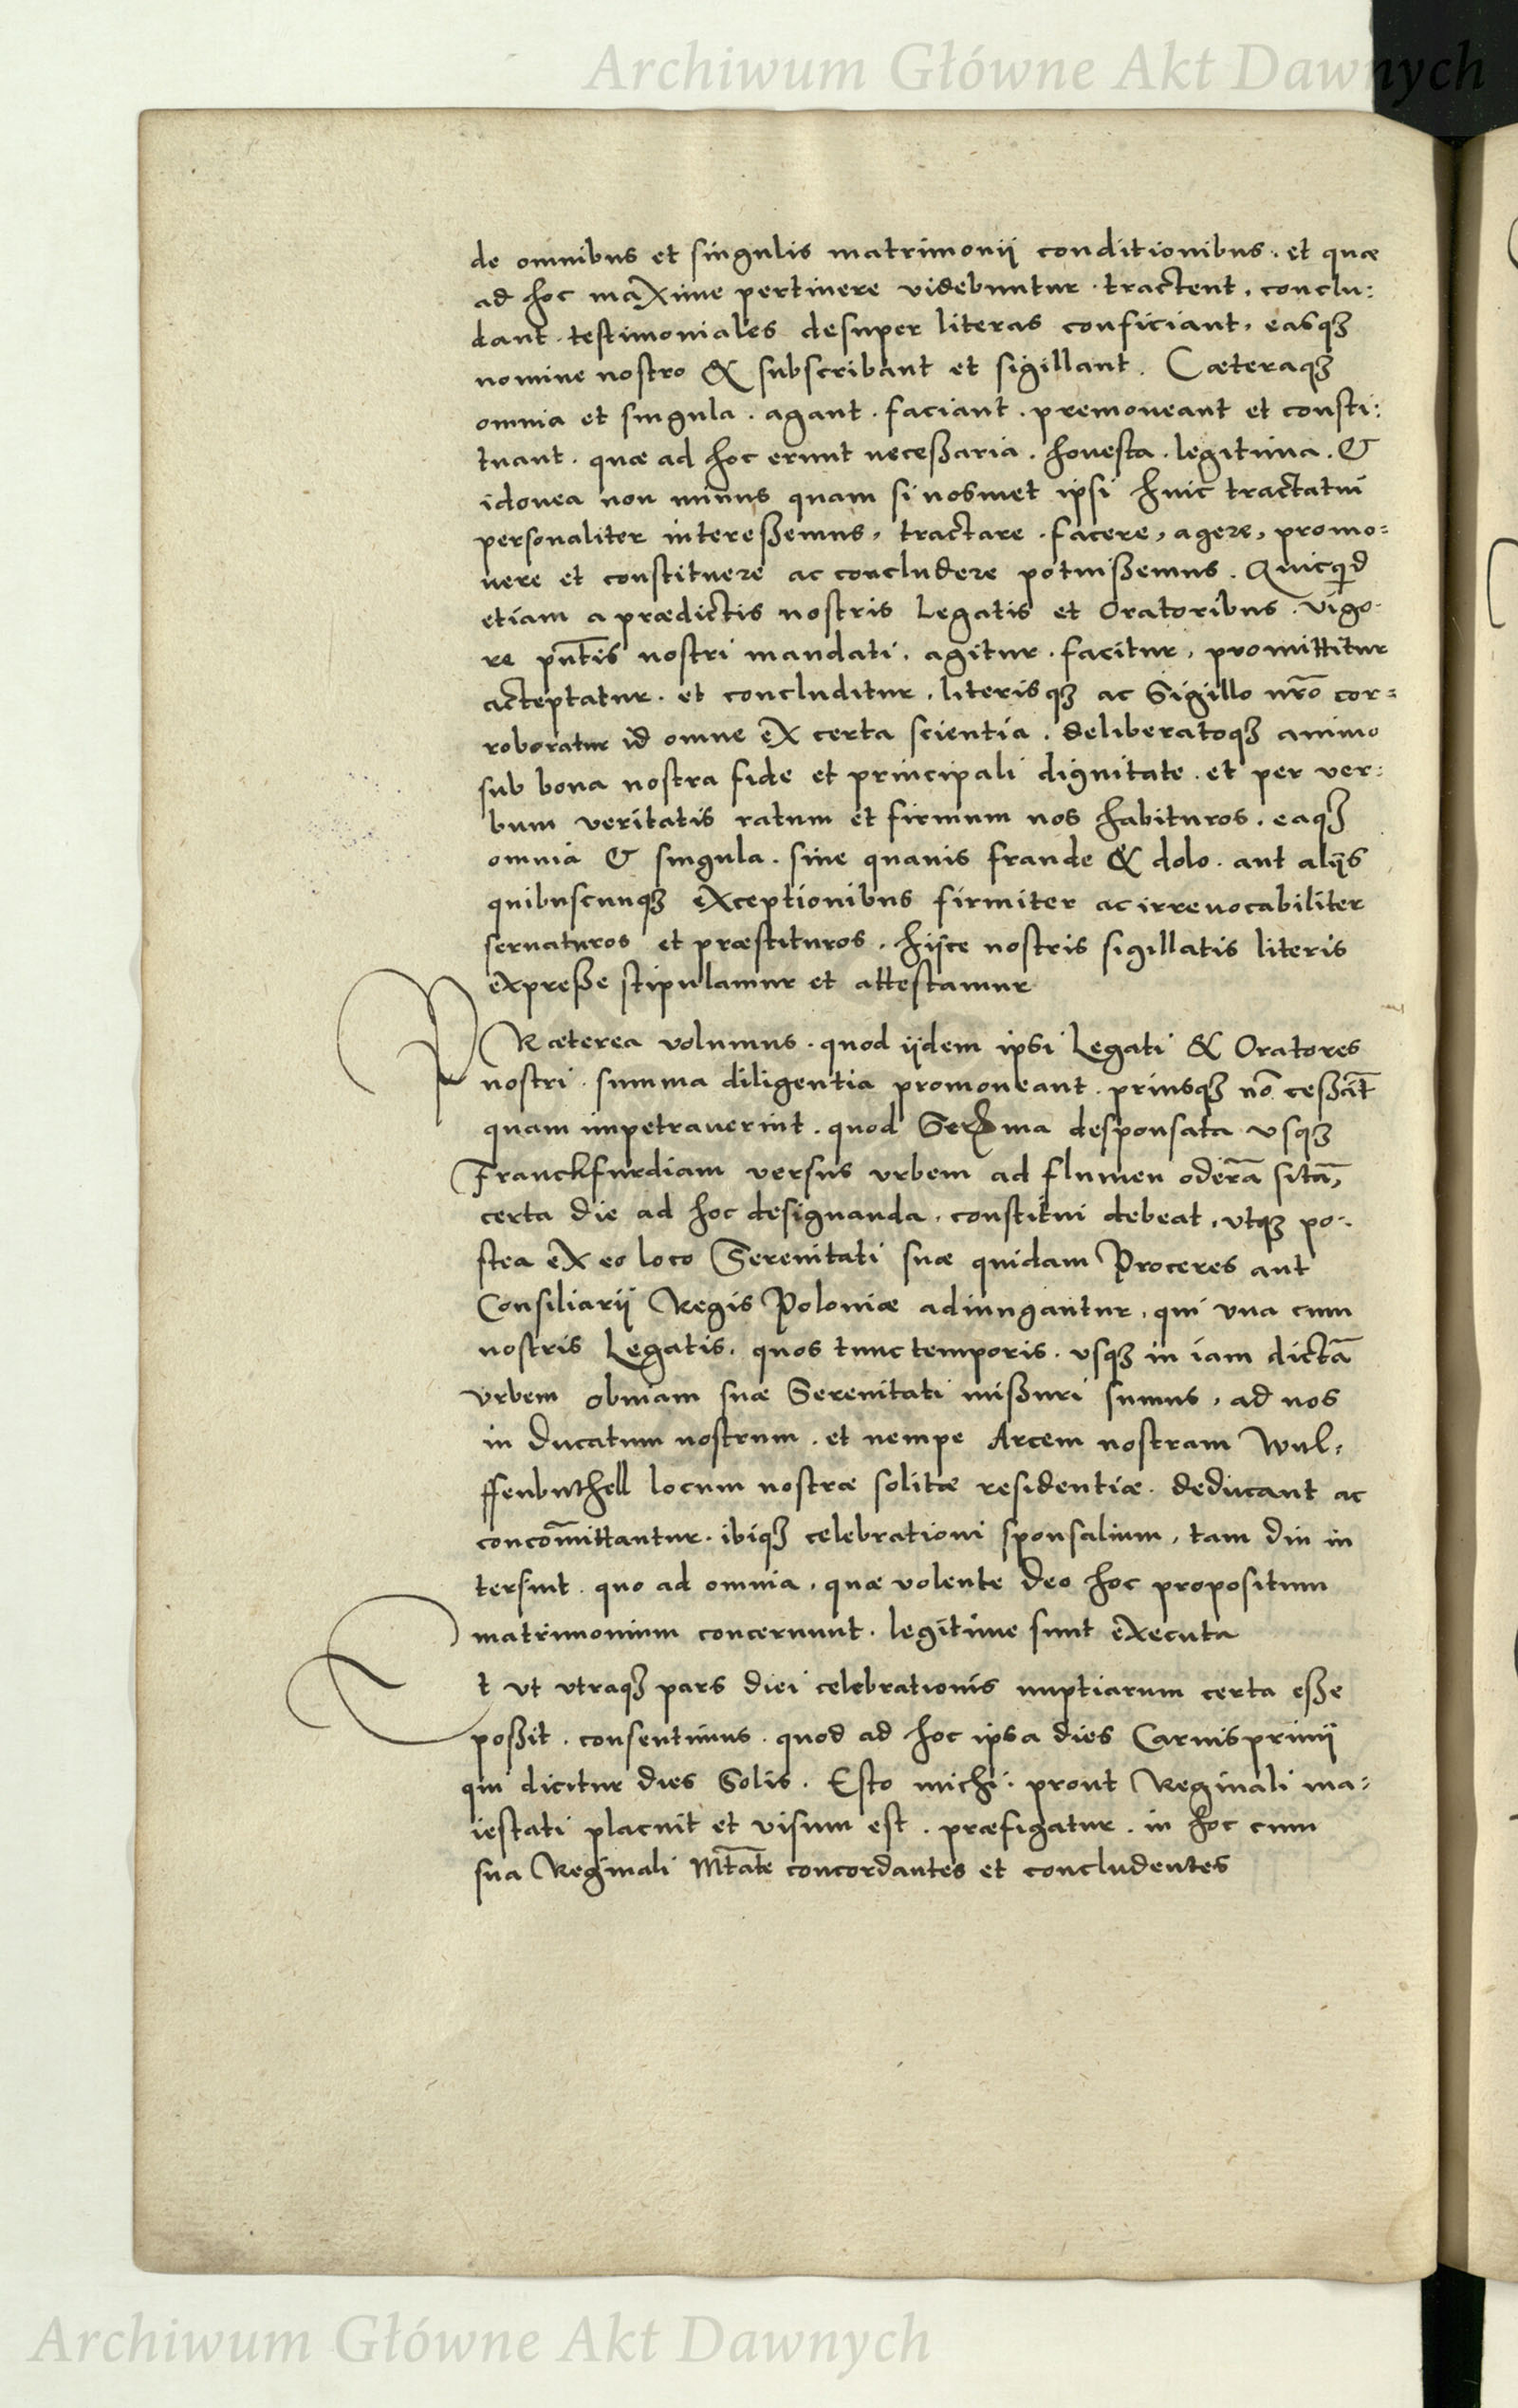 Archiwum Główne Akt Dawnych
de omnibus et singulis matrimonij conditionibus. et quæ
ad hoc maxime pertinere videbuntur. tractent, conclu:
dant. testimoniales desuper literas conficiant, easqꝫ
nomine nostro & subscribant et sigillant. Cæteraqꝫ
omnia et singula. agant. faciant. premoueant et consti:
tuant. quæ ad hoc erunt neceßaria. honesta. legitima. &
idonea non minus quam si nosmet ipsi huic tractatui
personaliter intereßemus, tractare. facere, agere, promo=
uere et constituere ac concludere potuißemus. Quicqͥd
etiam a prædictis nostris Legatis et Oratoribus. vigo-
re pñtis nostri mandati. agitur. facitur, promittitur
acteptatur. et concluditur. literisqꝫ ac Sigillo nr̃o cor=
roboratur id omne ex certa scientia. deliberatoqꝫ animo
sub bona nostra fide et principali dignitate. et per ver:
bum veritatis ratum et firmum nos habituros. eaqꝫ
omnia & singula. sine quauis fraude & dolo. aut alijs
quibuscunqꝫ exceptionibus firmiter ac irreuocabiliter
seruaturos et præstituros. hijsce nostris sigillatis literis
expreße stipulamur et attestamur
PRæterea volumus. quod ijdem ipsi Legati & Oratores
nostri. summa diligentia promoueant. priusqꝫ nō ceßāt
quam impetrauerint. quod Serᵐᵃ desponsata vsqꝫ
Franckfurdiam versus vrbem ad flumen oderā sitā,
certa die ad hoc designanda. constitui debeat, vtqꝫ po-.
stea ex eo loco Serenitati suæ quidam Proceres aut
Consiliarij Regis Poloniæ adiungantur, qui vna cum
nostris Legatis. quos tunc temporis. vsqꝫ in iam dictā
vrbem obuiam suæ Serenitati mißuri sumus, ad nos
in ducatum nostrum. et nempe Arcem nostram Wul,
ffenbuthell locum nostræ solitæ residentiæ. deducant ac
concōmittantur. ibiqꝫ celebrationi sponsalium, tam diu in
tersint. quo ad omnia, quæ volente deo hoc propositum
matrimonium concernunt. legitime sunt executa
Et vt vtraqꝫ pars diei celebrationis nuptiarum certa eße
poßit. consentimus. quod ad hoc ipsa dies Carnispriuij
qui dicitur dies Solis. Esto michi. prout Reginali ma:
iestati placuit et visum est. præfigatur. in hoc cum
sua Reginali Mt̃ate concordantes et concludentes
Archiwum Główne Akt Dawnych